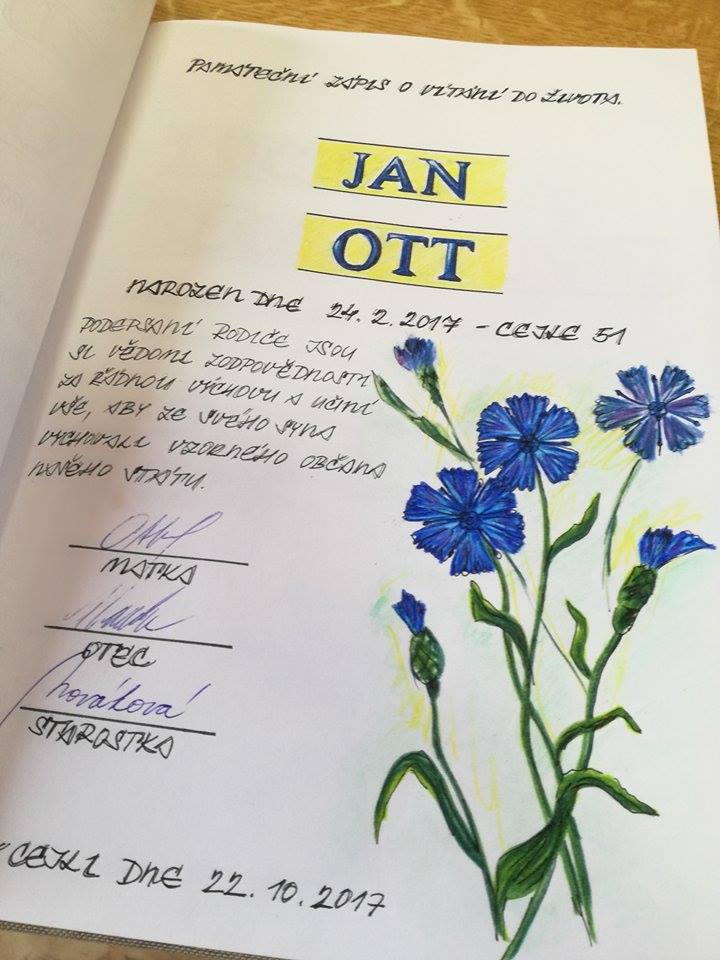 PAMÁTEČNÍ ZÁPIS O VÍTÁNÍ DO ŽIVOTA.
JAN
OTT
NAROZEN DNE 24. 2. 2017 - CEJLE 51
PODEPSANÍ RODIČE JSOU
SI VĚDOMI ZODPOVĚDNOSTI
ZA ŘÁDNOU VÝCHOVU A UČINÍ
VŠE, ABY ZE SVÉHO SYNA
VYCHOVALI VZORNÉHO OBČANA
NAŠEHO STÁTU.
MATKA
OTEC
Nováková
STAROSTKA
V CEJLI DNE 22. 10. 2017